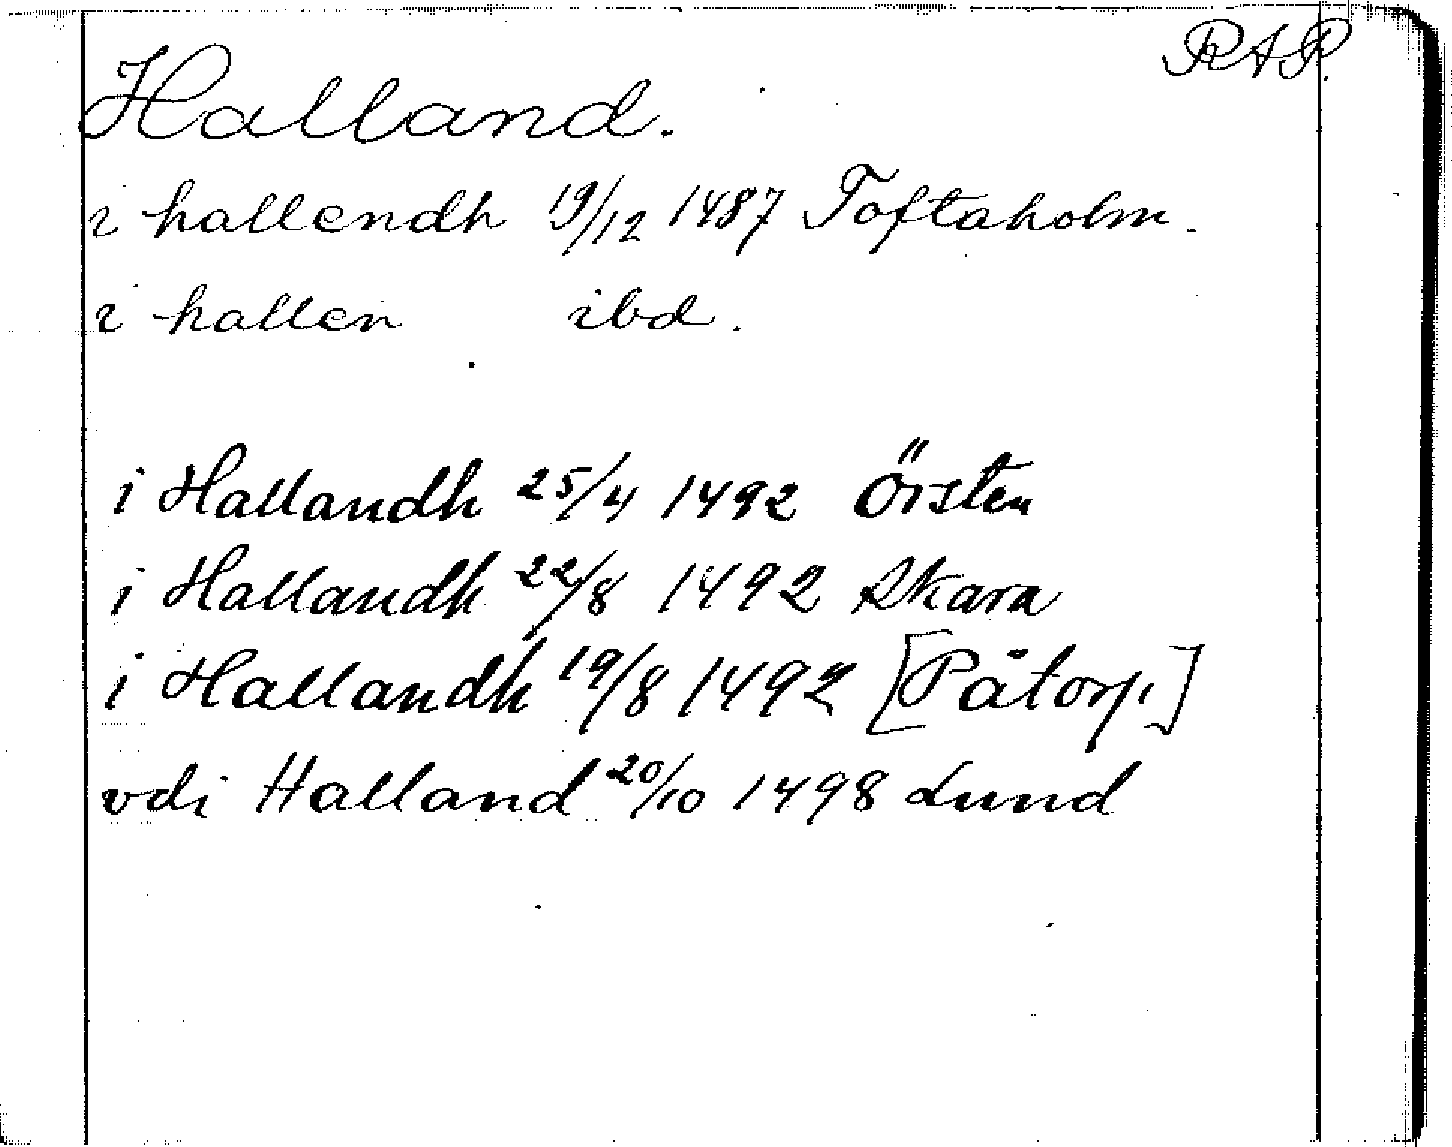 RAP.
Halland.
i hallendh 19/12 1487 Toftaholm.
i hallen ibd.
i Hallandh 25/4 1492 Örsten
i Hallandh 22/8 1492 Skara
i Hallandh 19/8 1492 [Påtorp]
vdi Halland 20/10 1498 Lund